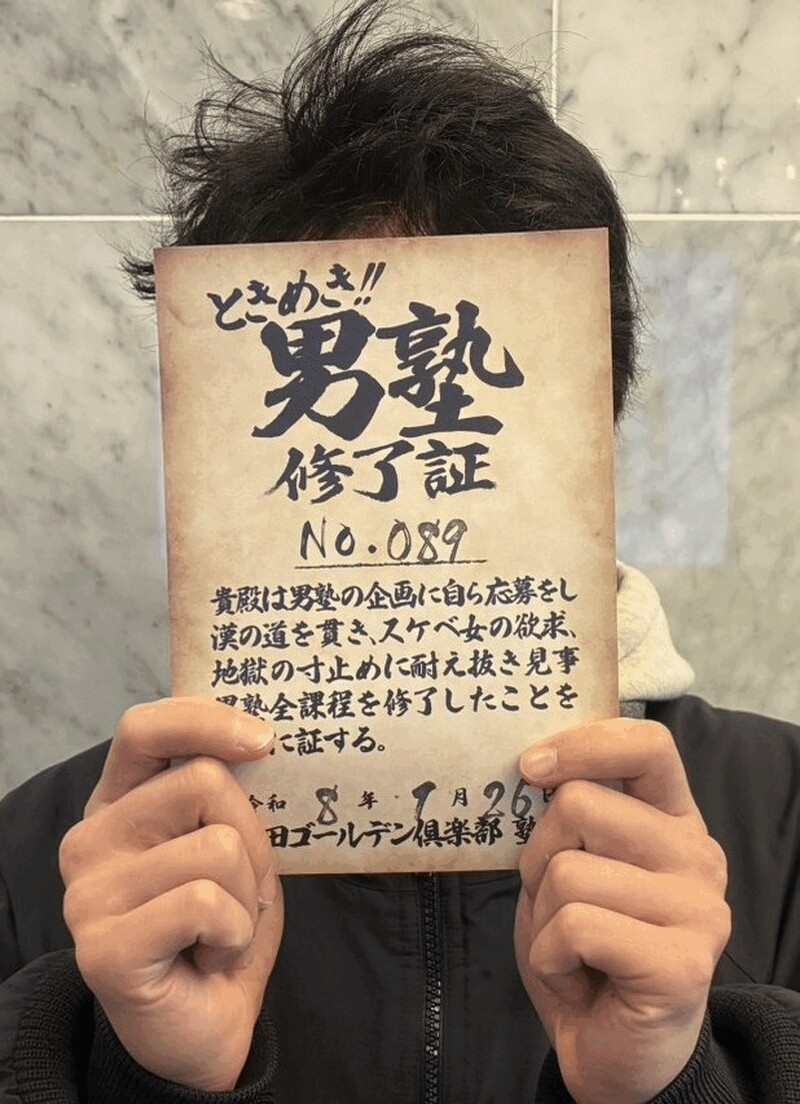 ときめき!!
男塾
修了証
No.089
貴殿は男塾の企画に自ら応募をし
漢の道を貫き、スケベ女の欲求、
地獄の寸止めに耐え抜き見事
男塾全課程を修了したことを
に証する。
令和 8 年 1 月 26 日
田ゴールデン倶楽部 塾